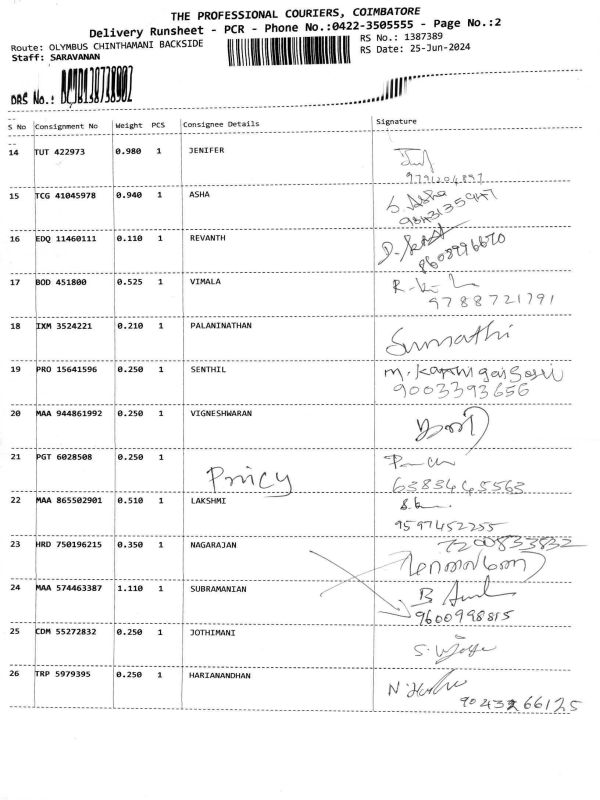 THE PROFESSIONAL COURIERS, COIMBATORE
Delivery Runsheet - PCR - Phone No.:0422-3505555 - Page No.:2
Route: OLYMBUS CHINTHAMANI BACKSIDE
RS No.: 1387389
Staff: SARAVANAN
RS Date: 25-Jun-2024
DRS No.:
S No Consignment No Weight PCS Consignee Details Signature
14 TUT 422973 0.980 1 JENIFER
9791204897
15 TCG 41045978 0.940 1 ASHA S. Asha
9843135947
16 EDQ 11460111 0.110 1 REVANTH
8608996670
17 BOD 451800 0.525 1 VIMALA
9788721791
18 IXM 3524221 0.210 1 PALANINATHAN Sumathi
19 PRO 15641596 0.250 1 SENTHIL
9003393656
20 MAA 944861992 0.250 1 VIGNESHWARAN
21 PGT 6028508 0.250 1
Princy
6383445563
22 MAA 865502901 0.510 1 LAKSHMI
9597452255
23 HRD 750196215 0.350 1 NAGARAJAN 7200833832
24 MAA 574463387 1.110 1 SUBRAMANIAN
9600998815
25 CDM 55272832 0.250 1 JOTHIMANI
26 TRP 5979395 0.250 1 HARIANANDHAN
9043266125